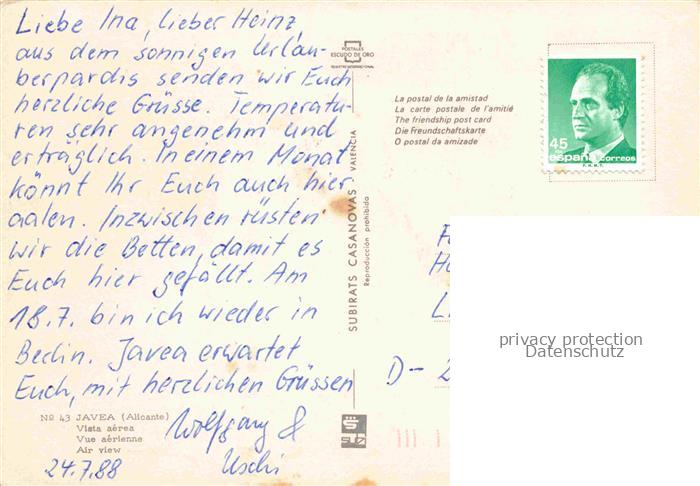 Liebe Ina, lieber Heinz,
aus dem sonnigen Urlau-
berpardis senden wir Euch
herzliche Grüsse. Temperatu-
ren sehr angenehm und
erträglich. In einem Monat
könnt Ihr Euch auch hier
aalen. Inzwischen rüsten
wir die Betten, damit es
Euch hier gefällt. Am
18.7. bin ich wieder in
Berlin. Javea erwartet
Euch, mit herzlichen Grüssen
Wolfgang &
Uschi
24.7.88
Nº 43 JAVEA (Alicante)
Vista aérea
Vue aérienne
Air view
POSTALES
ESCUDO DE ORO
SUBIRATS CASANOVAS VALENCIA
Reproducción prohibida
La postal de la amistad
La carte postale de l'amitié
The friendship post card
Die Freundschaftskarte
O postal da amizade
45
españa correos
F.N.M.T.
D-2
privacy protection
Datenschutz